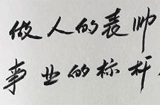 做人的表帅
事业的标杆